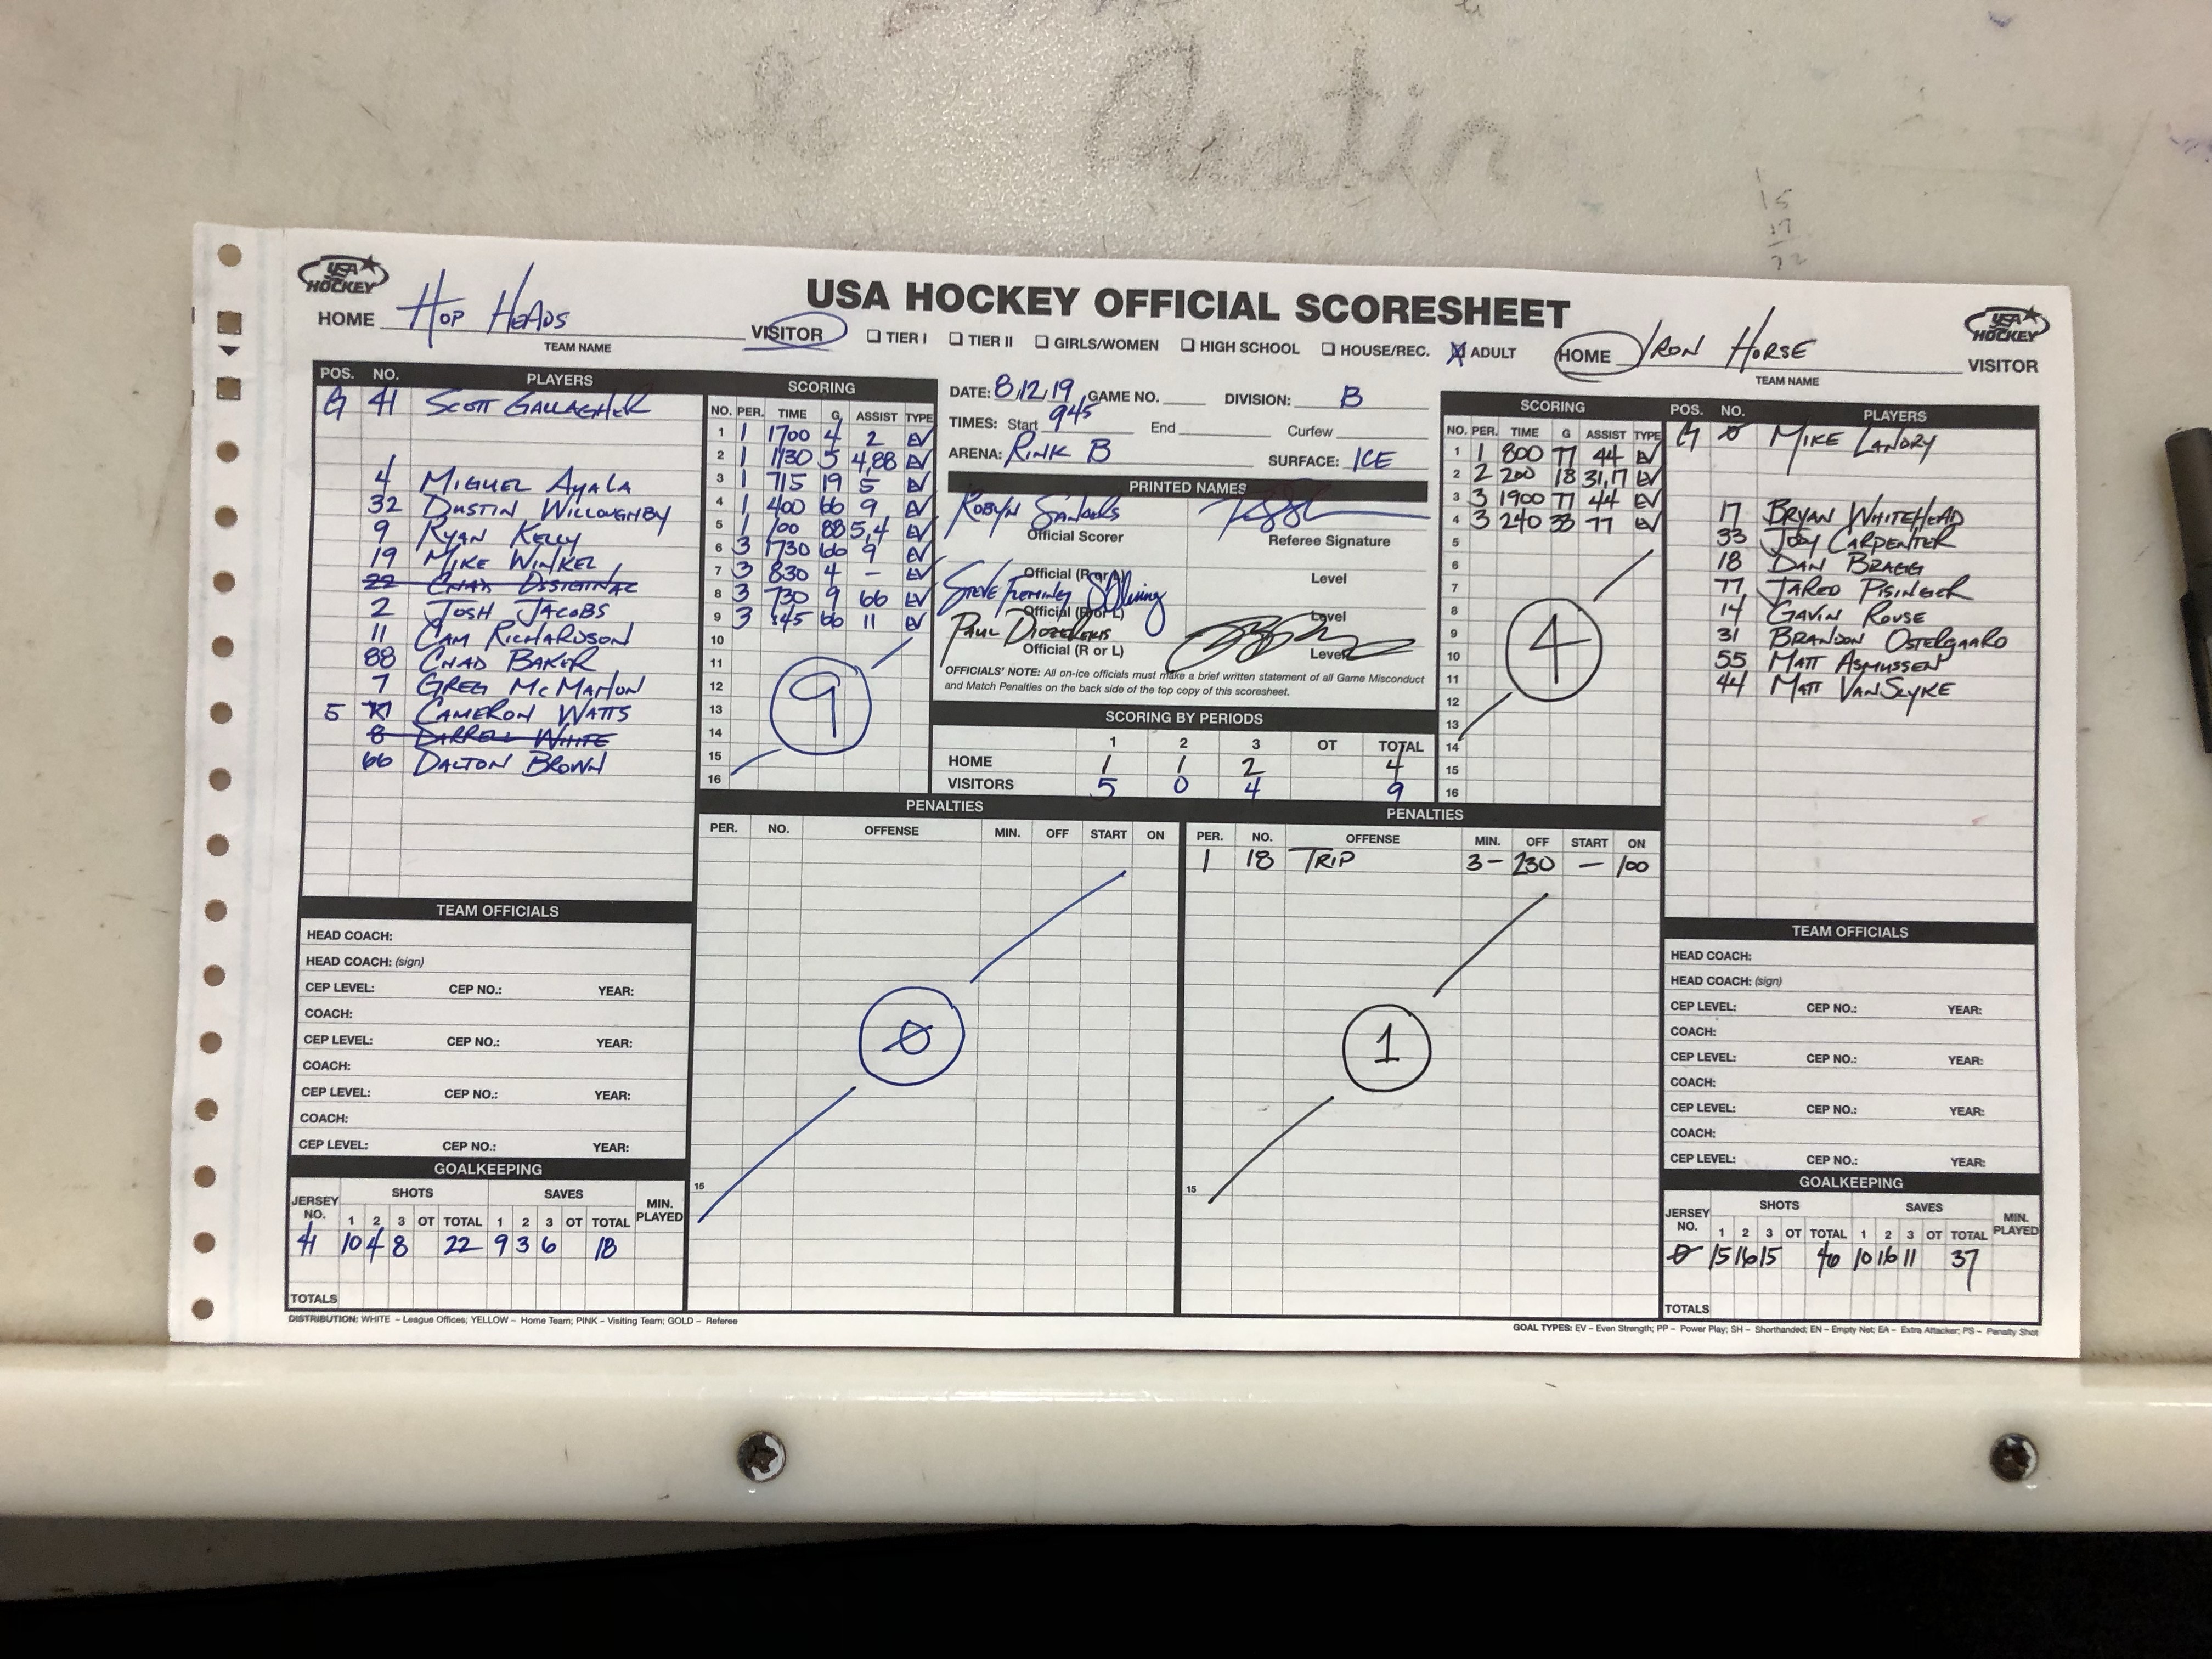 Quentin
15
17
22
USA HOCKEY
USA HOCKEY OFFICIAL SCORESHEET
USA HOCKEY
HOME HOP HEADS VISITOR
TEAM NAME
TIER I TIER II GIRLS/WOMEN HIGH SCHOOL HOUSE/REC. X ADULT
HOME IRON HORSE VISITOR
TEAM NAME
POS. NO. PLAYERS
G 41 SCOTT GALLAGHER
4 MIGUEL AYALA
32 DUSTIN WILLOUGHBY
9 RYAN KELLY
19 MIKE WINKEL
22 CHAD
2 JOSH JACOBS
11 CAM RICHARDSON
88 CHAD BAKER
7 GREG MCMAHON
5 CAMERON WATTS
8 DARRELL WHITE
66 DALTON BROWN
SCORING
NO. PER. TIME G ASSIST TYPE
1 1 1700 4 2 EV
2 1 1130 5 4,88 EV
3 1 715 19 5 EV
4 1 400 66 9 EV
5 1 100 88 5,4 EV
6 3 1730 66 9 EV
7 3 830 4 – EV
8 3 730 9 66 EV
9 3 :45 66 11 EV
10
11
12
13
14
15
16
9
DATE: 8/12/19 GAME NO. DIVISION: B
TIMES: Start 945 End Curfew
ARENA: RINK B SURFACE: ICE
PRINTED NAMES
ROBYN SANDERS
Official Scorer Referee Signature
STEVE FLEMING
Official (R or L) Level
PAUL
Official (R or L) Level
Official (R or L) Level
OFFICIALS' NOTE: All on-ice officials must make a brief written statement of all Game Misconduct
and Match Penalties on the back side of the top copy of this scoresheet.
SCORING BY PERIODS
1 2 3 OT TOTAL
HOME 1 1 2 4
VISITORS 5 0 4 9
SCORING
NO. PER. TIME G ASSIST TYPE
1 1 800 77 44 EV
2 2 200 18 31,17 EV
3 3 1900 77 44 EV
4 3 240 33 77 EV
5
6
7
8
9
10
11
12
13
14
15
16
4
POS. NO. PLAYERS
G 0 MIKE LANDRY
17 BRYAN WHITEHEAD
33 JOEY CARPENTER
18 DAN BRAGG
77 JARED PISINGER
14 GAVIN ROUSE
31 BRANDON OSTERGAARD
55 MATT ASMUSSEN
44 MATT VANSLYKE
PENALTIES
PER. NO. OFFENSE MIN. OFF START ON
0
15
PENALTIES
PER. NO. OFFENSE MIN. OFF START ON
1 18 TRIP 3– 230 – 100
1
15
TEAM OFFICIALS
HEAD COACH:
HEAD COACH: (sign)
CEP LEVEL: CEP NO.: YEAR:
COACH:
CEP LEVEL: CEP NO.: YEAR:
COACH:
CEP LEVEL: CEP NO.: YEAR:
COACH:
CEP LEVEL: CEP NO.: YEAR:
GOALKEEPING
JERSEY NO. SHOTS SAVES MIN. PLAYED
1 2 3 OT TOTAL 1 2 3 OT TOTAL
41 10 4 8 22 9 3 6 18
TOTALS
TEAM OFFICIALS
HEAD COACH:
HEAD COACH: (sign)
CEP LEVEL: CEP NO.: YEAR:
COACH:
CEP LEVEL: CEP NO.: YEAR:
COACH:
CEP LEVEL: CEP NO.: YEAR:
COACH:
CEP LEVEL: CEP NO.: YEAR:
GOALKEEPING
JERSEY NO. SHOTS SAVES MIN. PLAYED
1 2 3 OT TOTAL 1 2 3 OT TOTAL
0 15 16 15 46 10 16 11 37
TOTALS
DISTRIBUTION: WHITE – League Offices; YELLOW – Home Team; PINK – Visiting Team; GOLD – Referee
GOAL TYPES: EV – Even Strength; PP – Power Play; SH – Shorthanded; EN – Empty Net; EA – Extra Attacker; PS – Penalty Shot